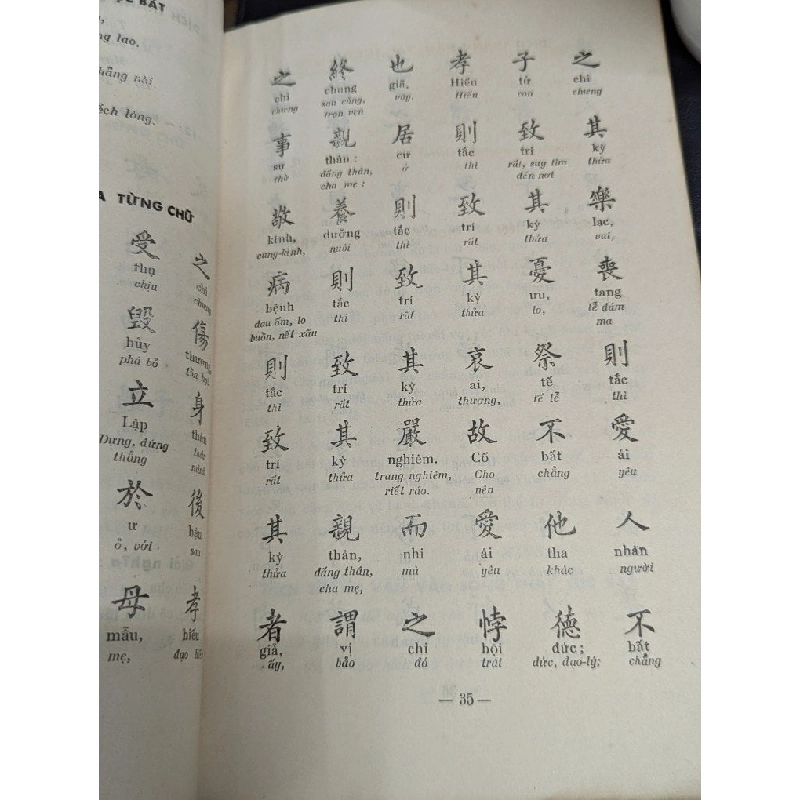 BẤT
lao.
chẳng nài
lòng.
TỪNG CHỮ
受 之
thụ chi
chịu chưng
毀 傷
hủy
phá bỏ
立 身
Lập thân
Dựng, đứng
thẳng
於 後
ư hậu
ở, với sau
母 孝
mẫu, hiếu
mẹ,
之 終 也 孝 子 之
chi chung giã, Hiếu tử chi
chưng sau cùng, vậy. Hiền con chưng
trọn vẹn
事 親 居 則 致 其
sự thân: cư tắc trí kỳ
thờ đấng thân, ở thì rất, suy tìm thửa
cha mẹ: đến nơi
敬 養 則 致 其 樂
kính, dưỡng tắc trí kỳ lạc,
cung-kính, nuôi thì rất thửa vui,
病 則 致 其 憂 喪
bệnh tắc trí kỳ ưu, tang
đau ốm, lo thì rất thửa lo, lễ đám
buồn, nết xấu ma
則 致 其 哀 祭 則
tắc trí kỳ ai, tế tắc
thì rất thửa thương, tế lễ thì
致 其 嚴 故 不 愛
trí kỳ nghiêm. Cố bất ái
rất thửa trang nghiêm, Cho chẳng yêu
riết ráo. nên
其 親 而 愛 他 人
kỳ thân, nhi ái tha nhân
thửa đấng thân, mà yêu khác người
cha mẹ,
者 謂 之 悖 德 不
giả, vị chi bội đức; bất
ấy, bảo đó trái đức, đạo-lý; chẳng
— 35 —